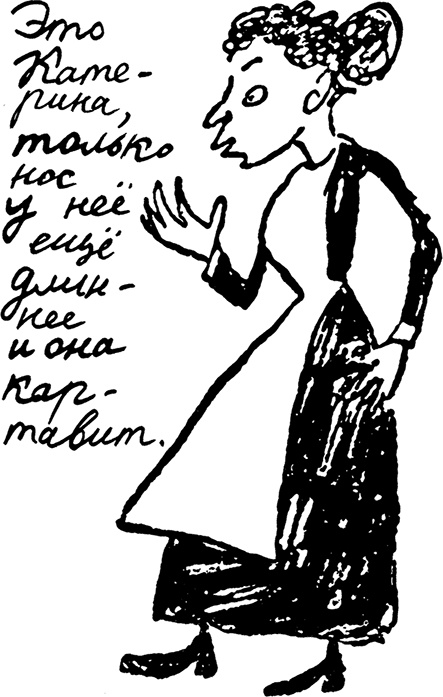 Это
Кате-
рина,
только
нос
у неё
ещё
длин-
нее
и она
кар-
тавит.